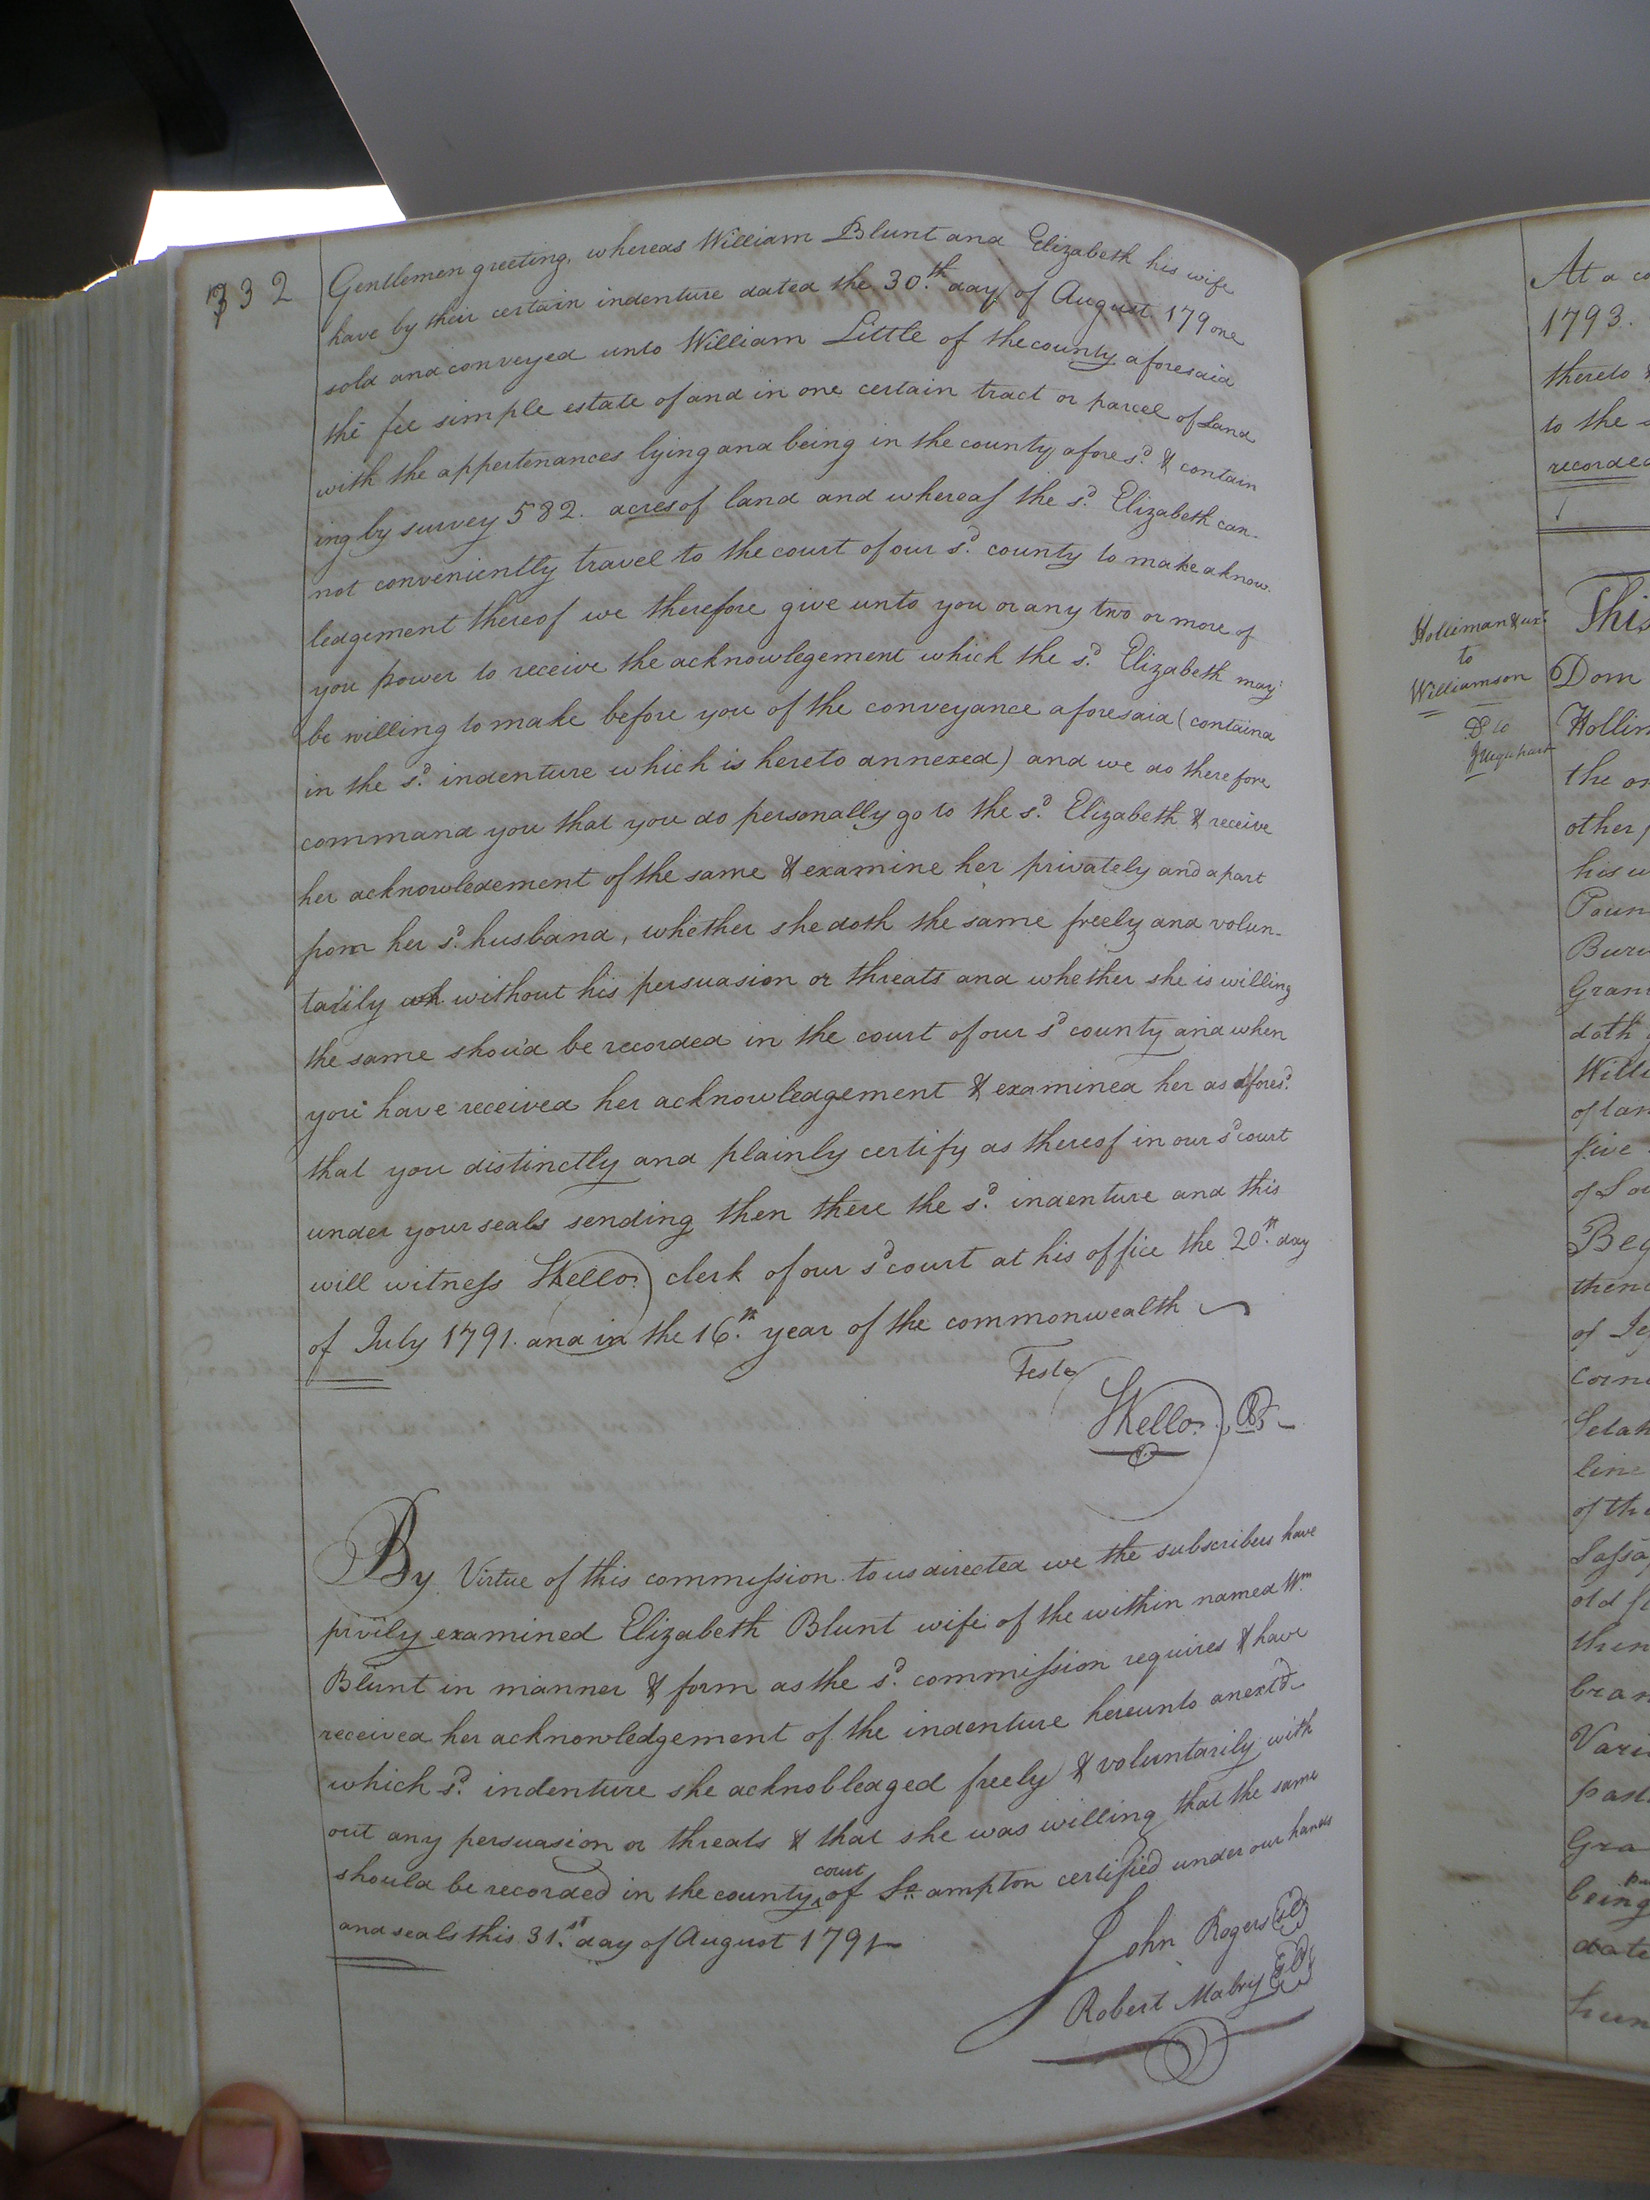 732
Gentlemen greeting, whereas William Blunt and Elizabeth his wife
have by their certain indenture dated the 30th day of August 179one
sold and conveyed unto William Little of the county aforesaid
the fee simple estate of and in one certain tract or parcel of Land
with the appertenances lying and being in the county afores.d & contain
ing by survey 582. acres of land and whereas the s.d Elizabeth can-
not conveniently travel to the court of our s.d county to make aknow-
ledgement thereof we therefore give unto you or any two or more of
you power to receive the acknowlegement which the s.d Elizabeth may
be willing to make before you of the conveyance aforesaid (containd
in the s.d indenture which is hereto annexed) and we do therefore
command you that you do personally go to the s.d Elizabeth & receive
her acknowledement of the same & examine her privately and apart
from her s.d husband, whether she doth the same freely and volun-
tarily without his persuasion or threats and whether she is willing
the same shou'd be recorded in the court of our s.d county and when
you have received her acknowledgement & examined her as afores.d
that you distinctly and plainly certify as thereof in our s.d court
under your seals sending then there the s.d indenture and this
will witness SKello. clerk of our s.d court at his office the 20.th day
of July 1791. and in the 16.th year of the commonwealth
Teste
SKello.
By Virtue of this commission to us directed we the subscribers have
privily examined Elizabeth Blunt wife of the within named Wm
Blunt in manner & form as the s.d commission requires & have
received her acknowledgement of the indenture hereunto anex'd
which s.d indenture she acknobledged freely & voluntarily with
out any persuasion or threats & that she was willing that the same
should be recorded in the county court of So.ampton certified under our hands
and seals this 31.st day of August 1791
John Rogers
Robert Mabry
At a co
1793.
thereto
to the
recorded
Holliman & ux.
to
Williamson
This
Dom
Hollim
the on
other
his w
Poun
Gran
doth
Willi
of lan
five
of So
Beg
thenc
of
corne
line
of th
old
then
bran
past
Gra
being
date
hun